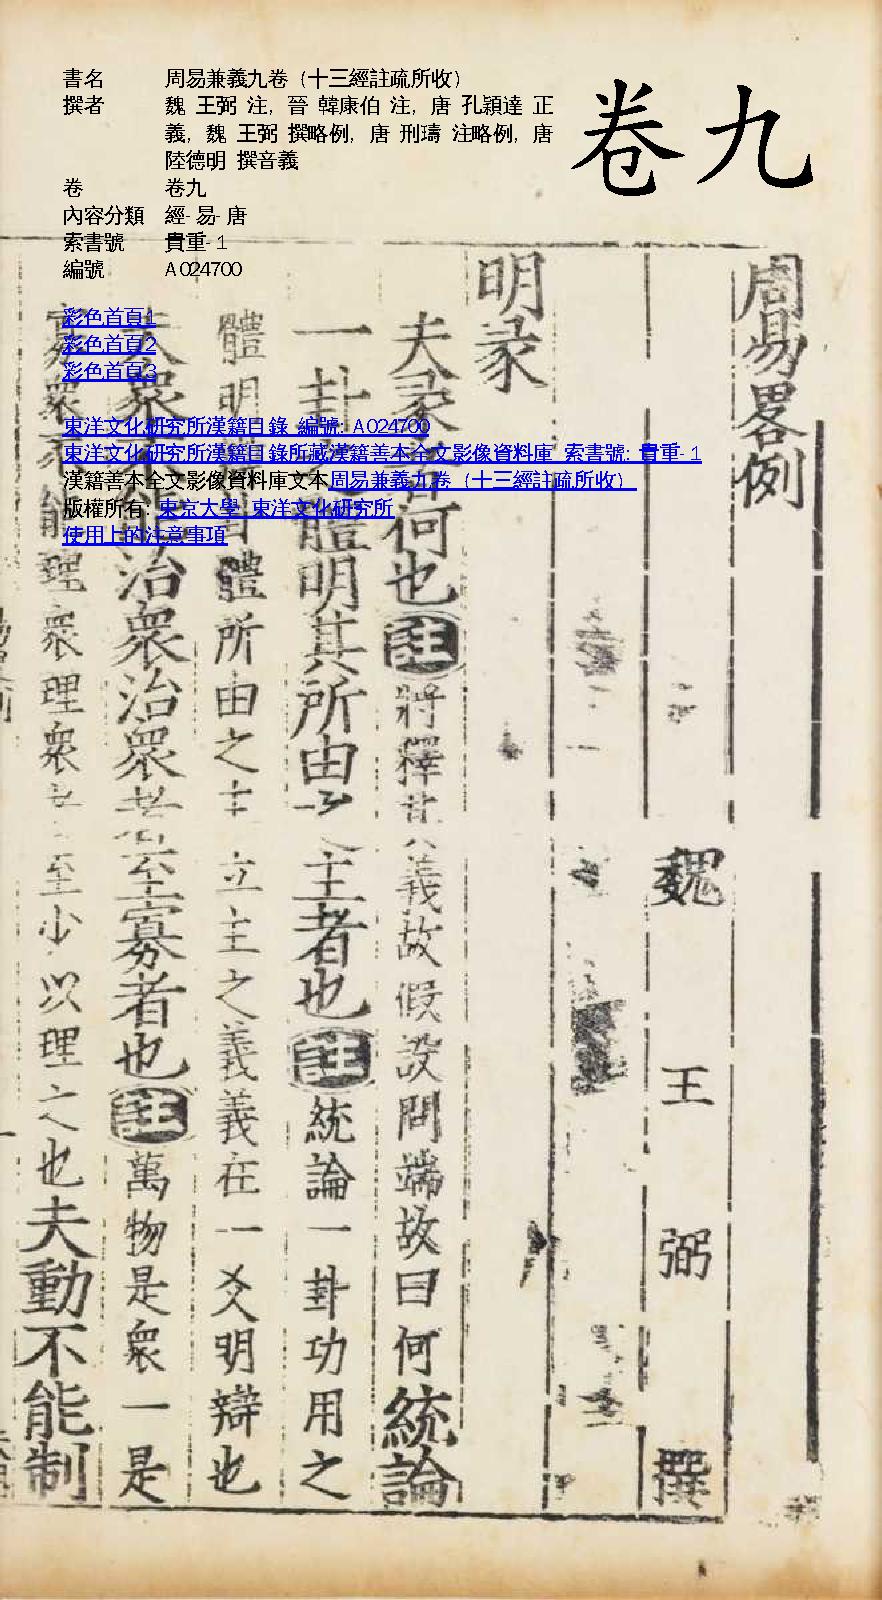 書名 周易兼義九卷 (十三經註疏所收)
撰者 魏 王弼 注, 晉 韓康伯 注, 唐 孔穎達 正
義, 魏 王弼 撰略例, 唐 刑璹 注略例, 唐
陸德明 撰音義
卷 卷九
內容分類 經-易-唐
索書號 貴重-1
編號 A024700
卷九
彩色首頁1
彩色首頁2
彩色首頁3
東洋文化研究所漢籍目錄 編號: A024700
東洋文化研究所漢籍目錄所藏漢籍善本全文影像資料庫 索書號: 貴重-1
漢籍善本全文影像資料庫文本周易兼義九卷 (十三經註疏所收)
版權所有: 東京大學 東洋文化研究所
使用上的注意事項
周易畧例
魏 王 弼 撰
明彖
夫彖者何也註將釋其義故假設問端故曰何統論
一卦之體明其所由之主者也註統論一卦功用之
體明辯卦體體所由之主立主之義義在一爻明辯也
夫衆不能治衆治衆者至寡者也註萬物是衆一是
寡衆不能理衆理衆者至少以理之也夫動不能制